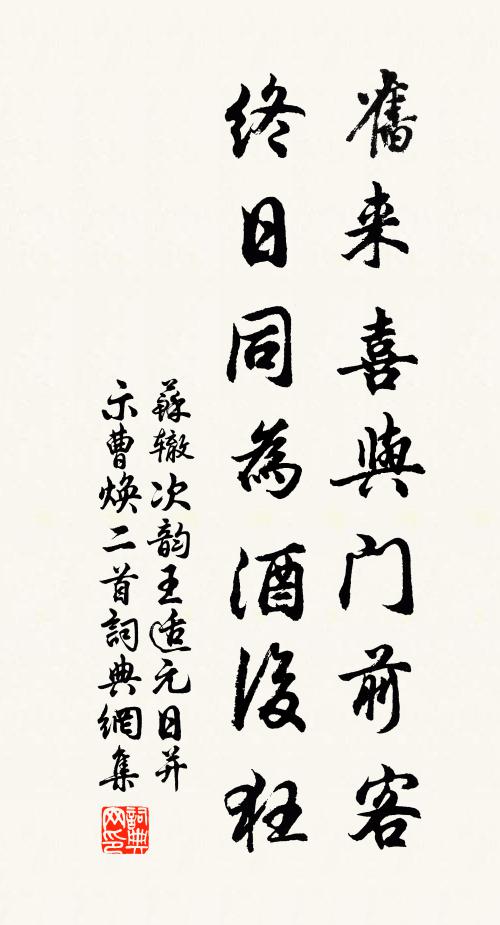 舊来喜與门前客
終日同為酒後狂
蘇辙次韵王适元日并
示曹焕二首詞典網集
詞典网印